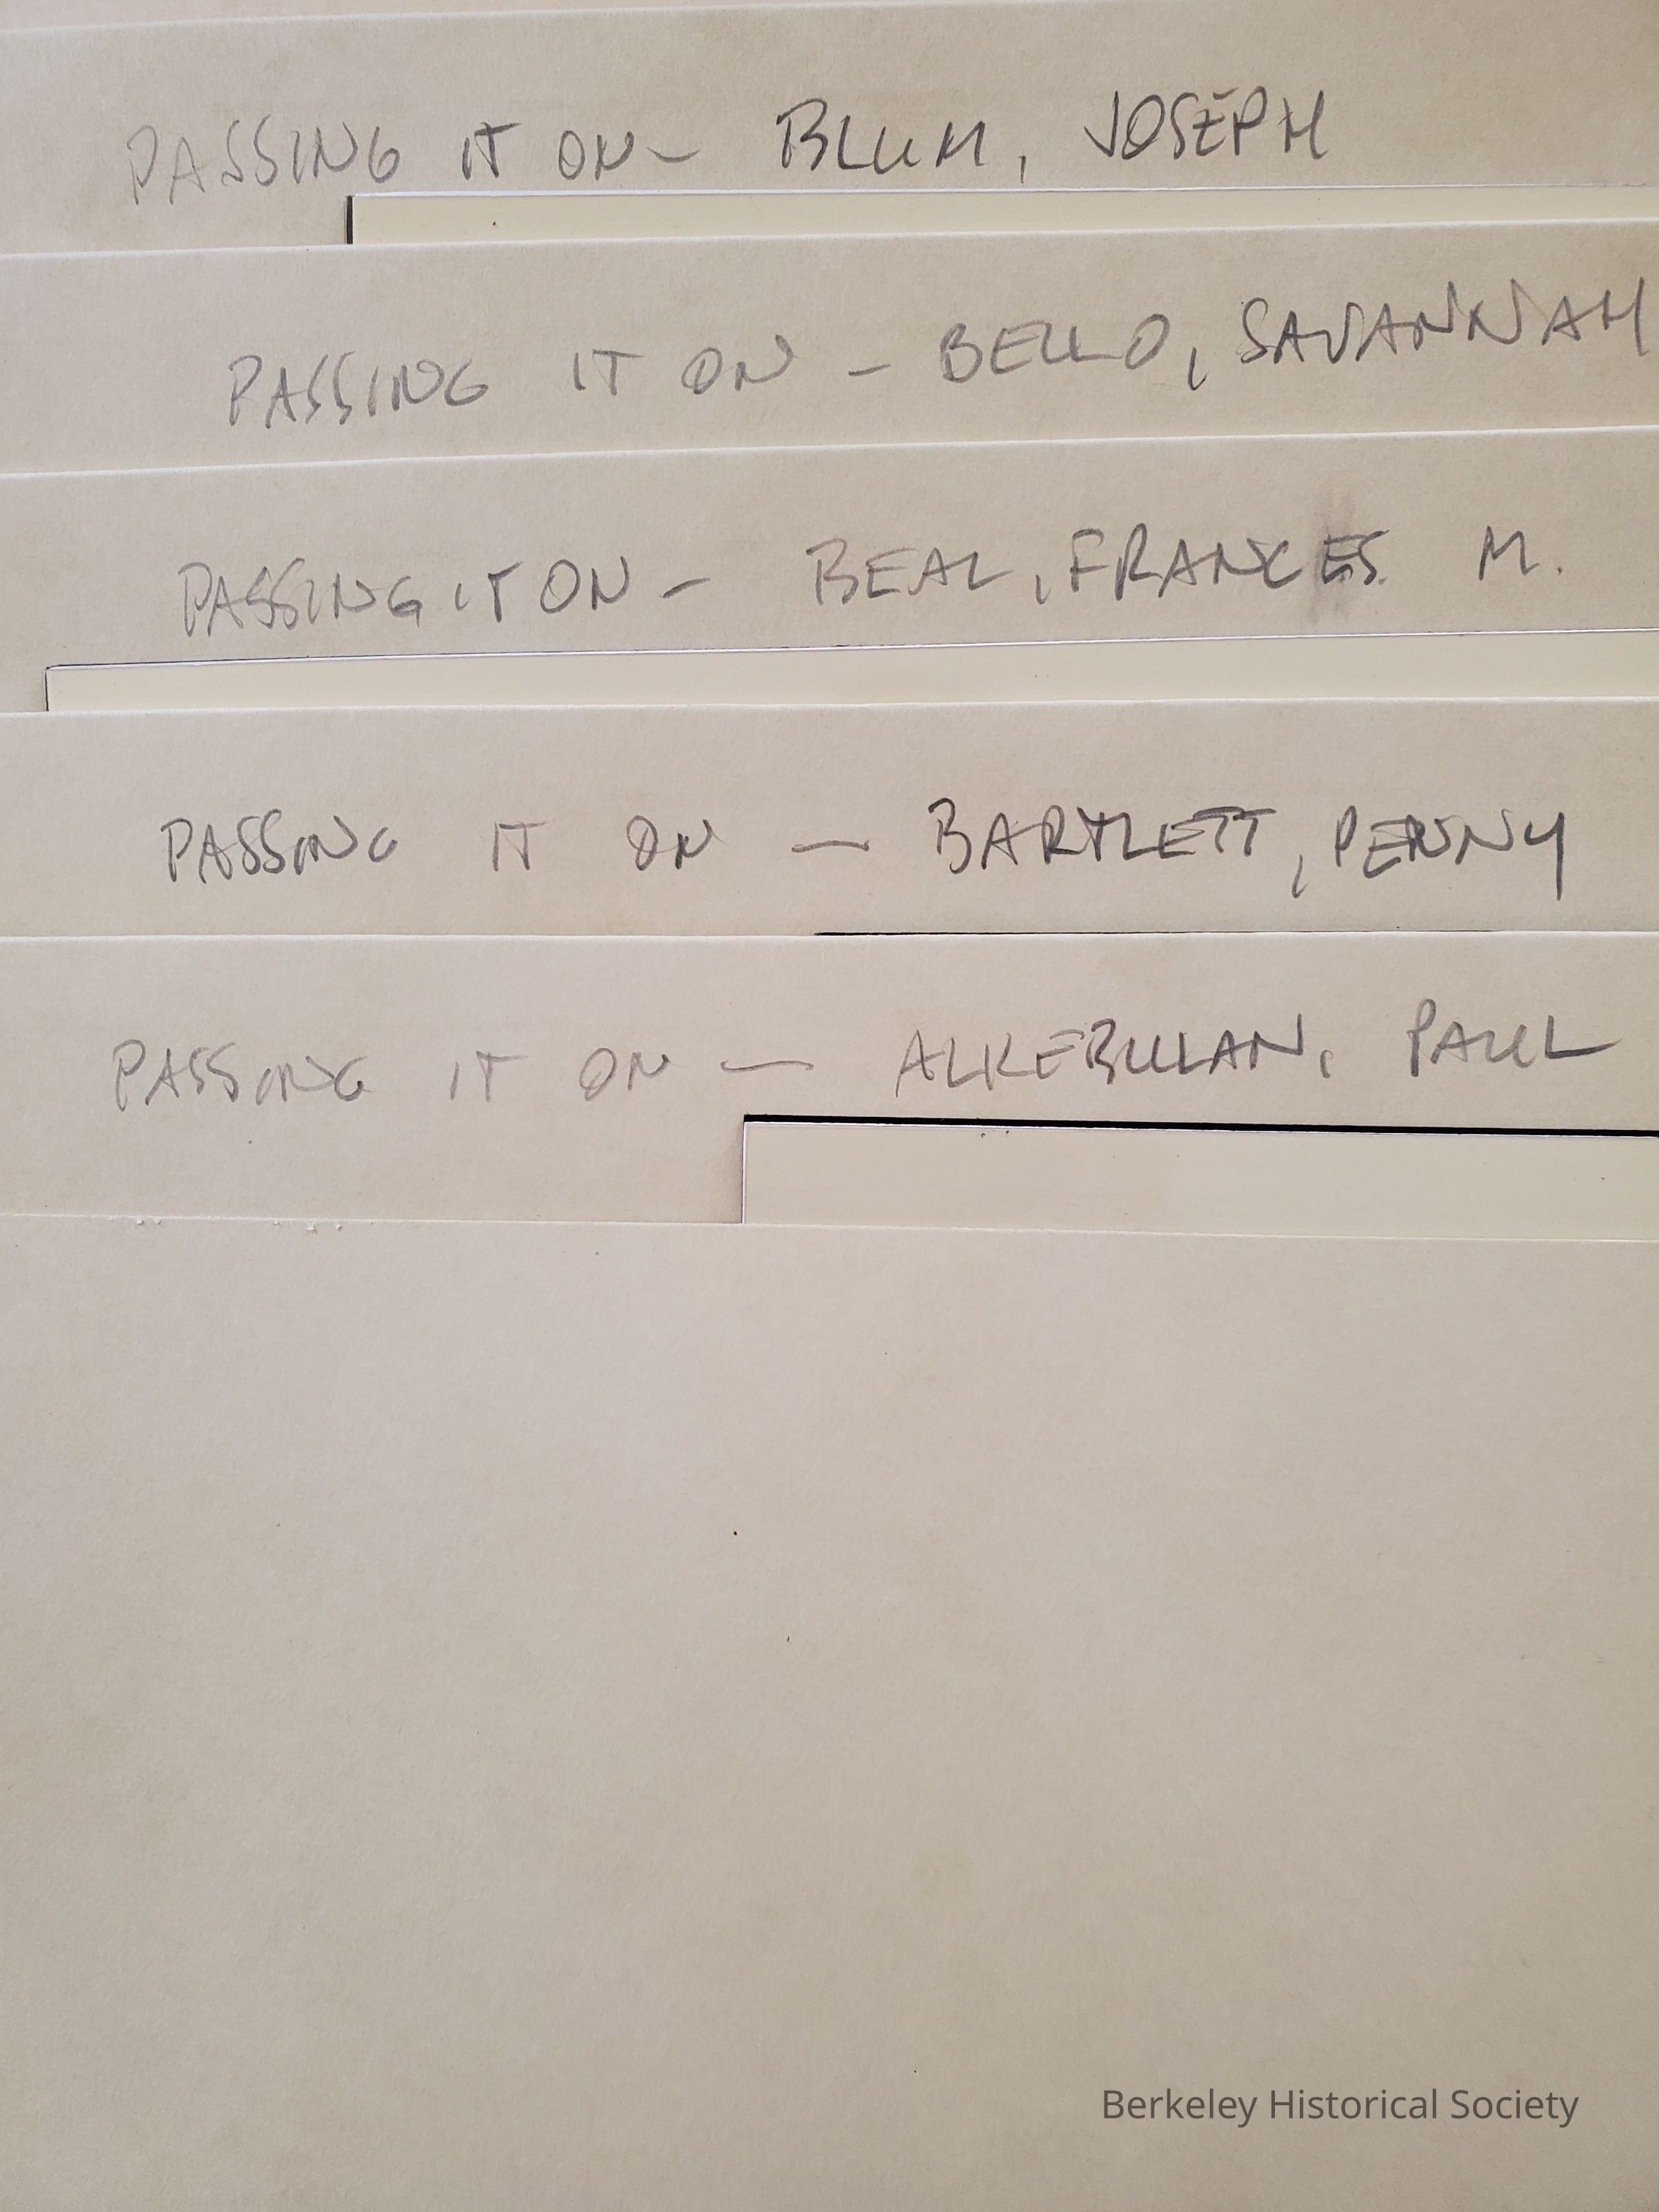 PASSING IT ON - BLUM, JOSEPH
PASSING IT ON - BELLO, SAVANNAH
PASSING IT ON - BEAL, FRANCES M.
PASSING IT ON - BARTLETT, PENNY
PASSING IT ON - ALKEBULAN, PAUL
Berkeley Historical Society